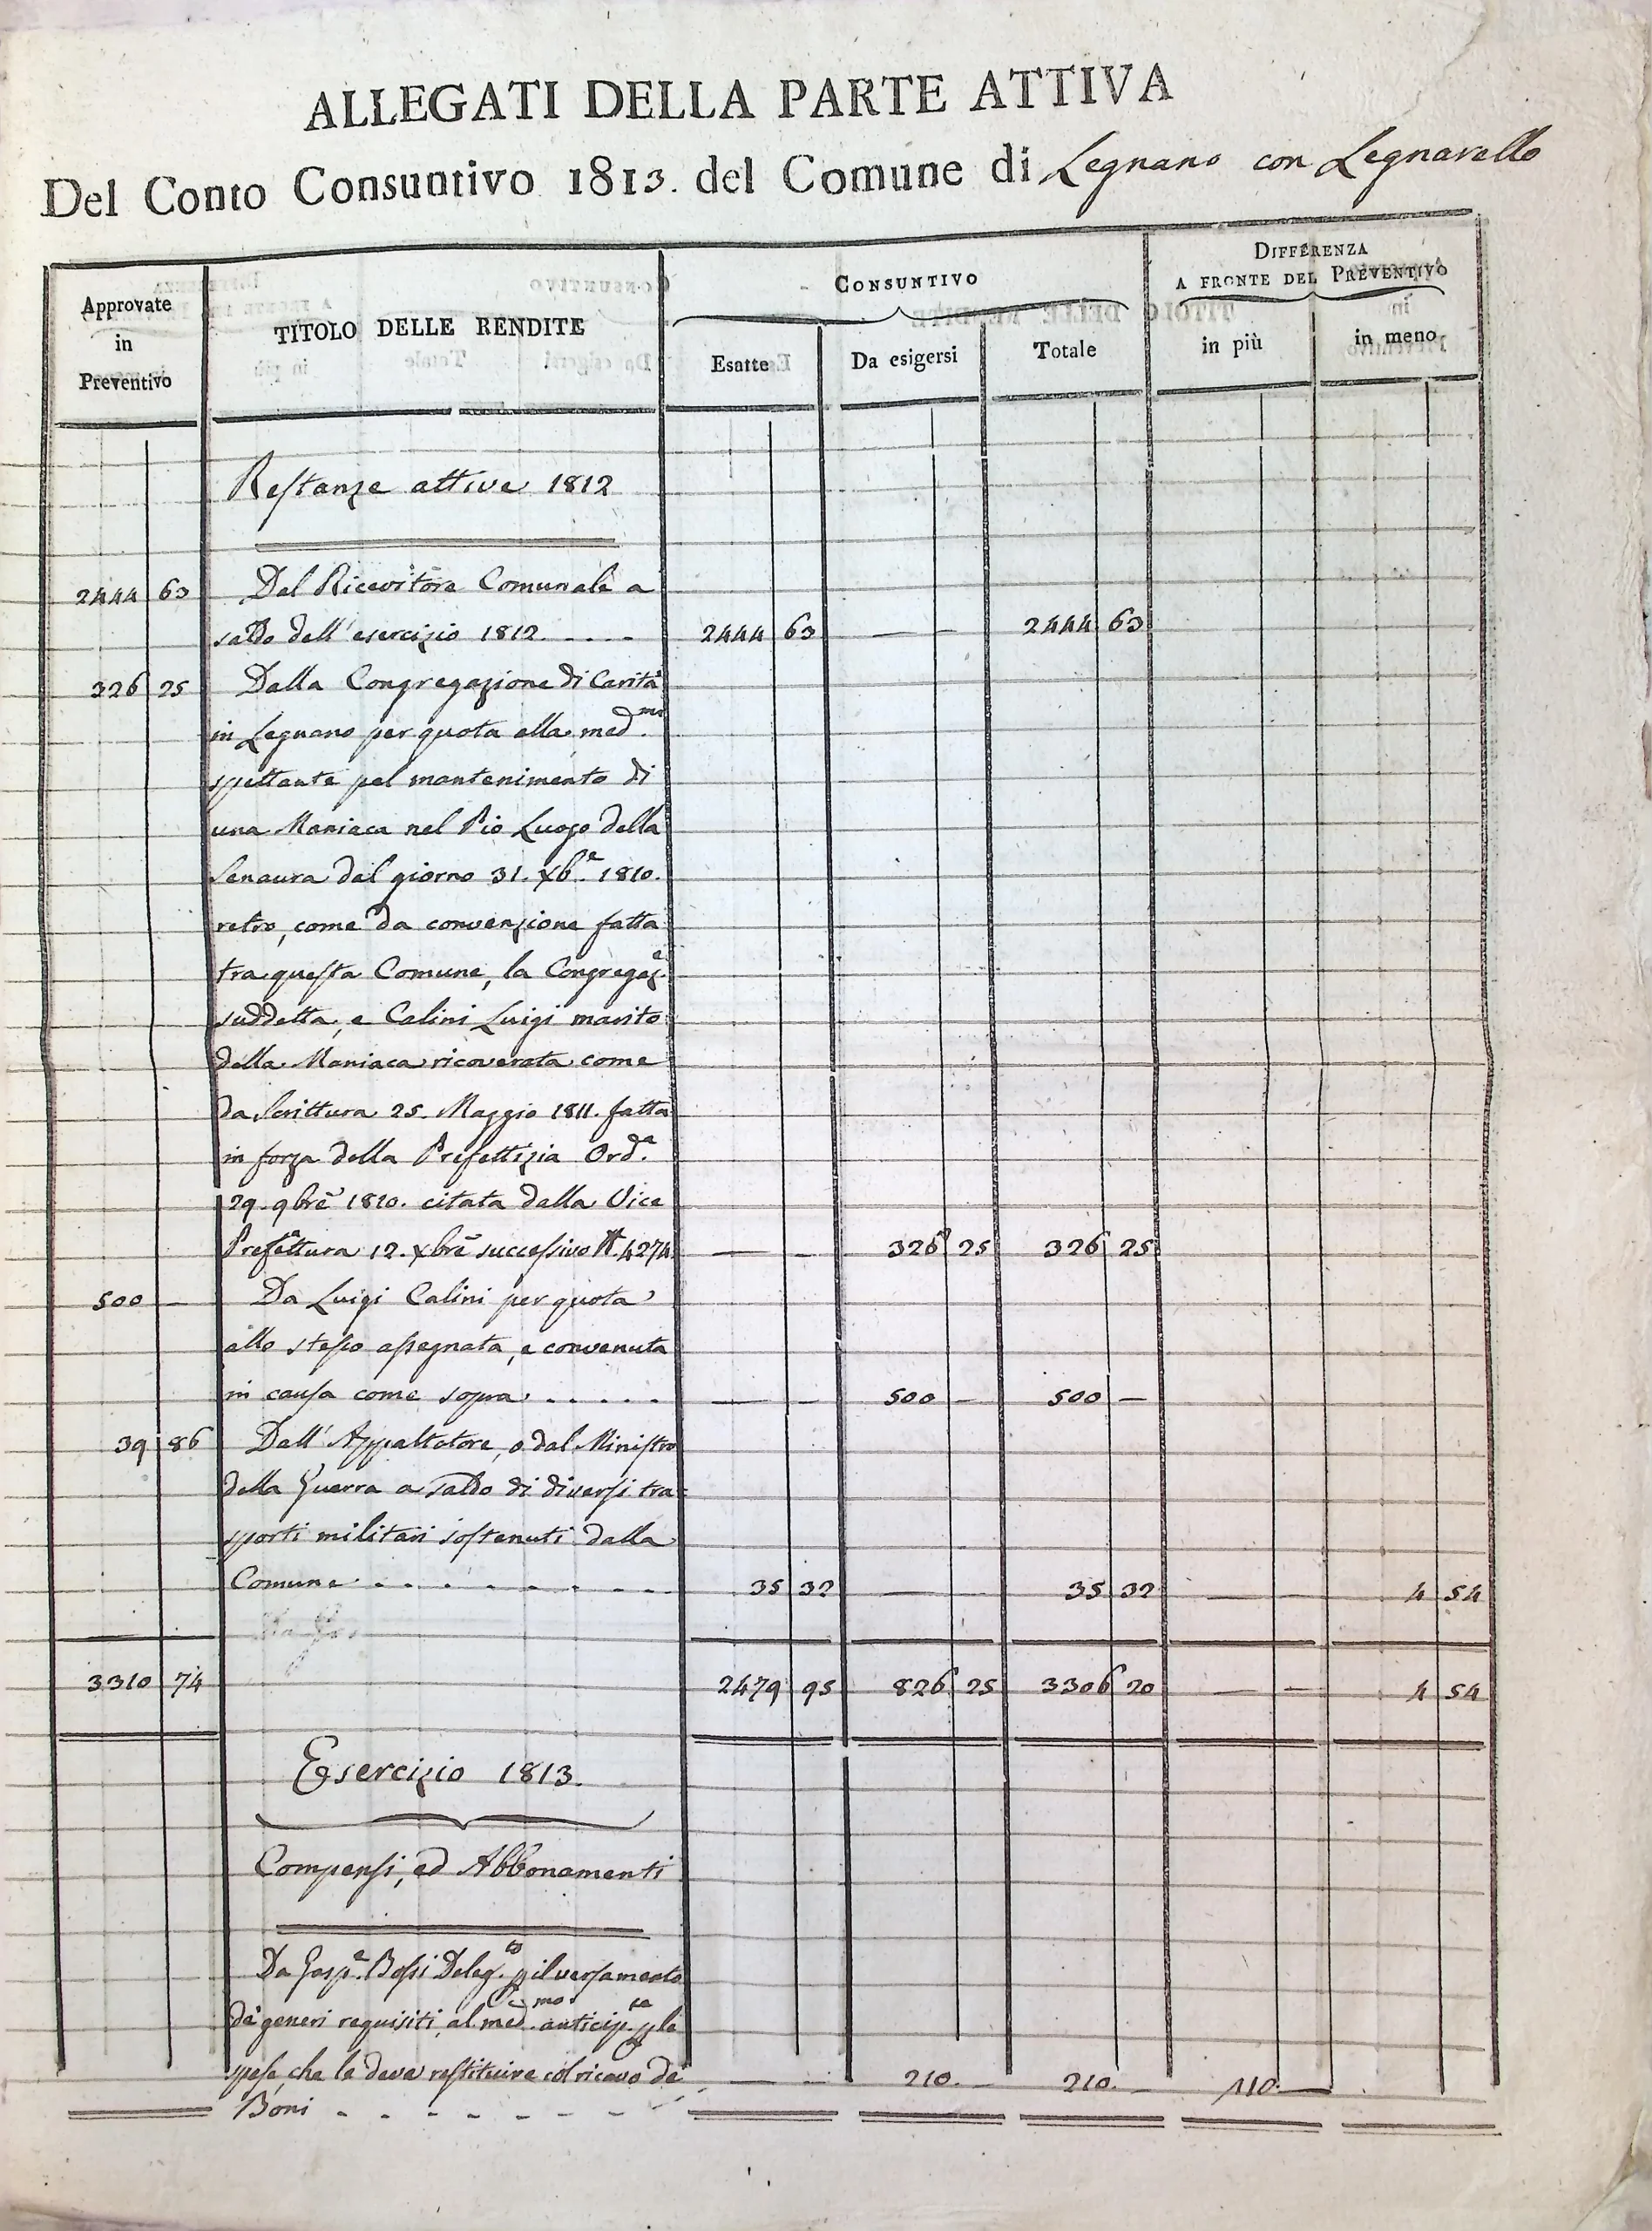 ALLEGATI DELLA PARTE ATTIVA
Del Conto Consuntivo 1813. del Comune di Legnano con Legnarello
Approvate in Preventivo
TITOLO DELLE RENDITE
CONSUNTIVO
Esatte
Da esigersi
Totale
DIFFERENZA
A FRONTE DEL PREVENTIVO
in più
in meno
Restanze attive 1812
2444 63 Dal Ricevitore Comunale a
saldo dell'esercizio 1812 . . . . 2444 63 — — 2444 63
326 25 Dalla Congregazione di Carità
in Legnano per quota alla med.ma
spettante pel mantenimento di
una Maniaca nel Pio Luogo della
Senavra dal giorno 31. Xb.e 1810.
retro, come da convenzione fatta
tra questa Comune, la Congregaz.e
suddetta, e Calini Luigi marito
della Maniaca ricoverata come
da Scrittura 25. Maggio 1811. fatta
in forza della Prefettizia Ord.a
29. 9bre 1810. citata dalla Vice
Prefettura 12. Xbre successivo N. 4274 — — 326 25 326 25
500 — Da Luigi Calini per quota
allo stesso assegnata, e convenuta
in causa come sopra . . . . . — — 500 — 500 —
39 86 Dall'Appaltatore, o dal Ministro
della Guerra a saldo di diversi tra=
sporti militari sostenuti dalla
Comune . . . . . . . . 35 32 — 35 32 — — 4 54
3310 74 2479 95 826 25 3306 20 — — 4 54
Esercizio 1813.
Compensi, ed Abbonamenti
Da Gasp.e Bossi Deleg.to p il versamento
de' generi requisiti, al med.mo anticip.te p le
spese, che le deve restituire col ricavo de' — — 210. — 210. — 210. —
Boni - - - - - - -